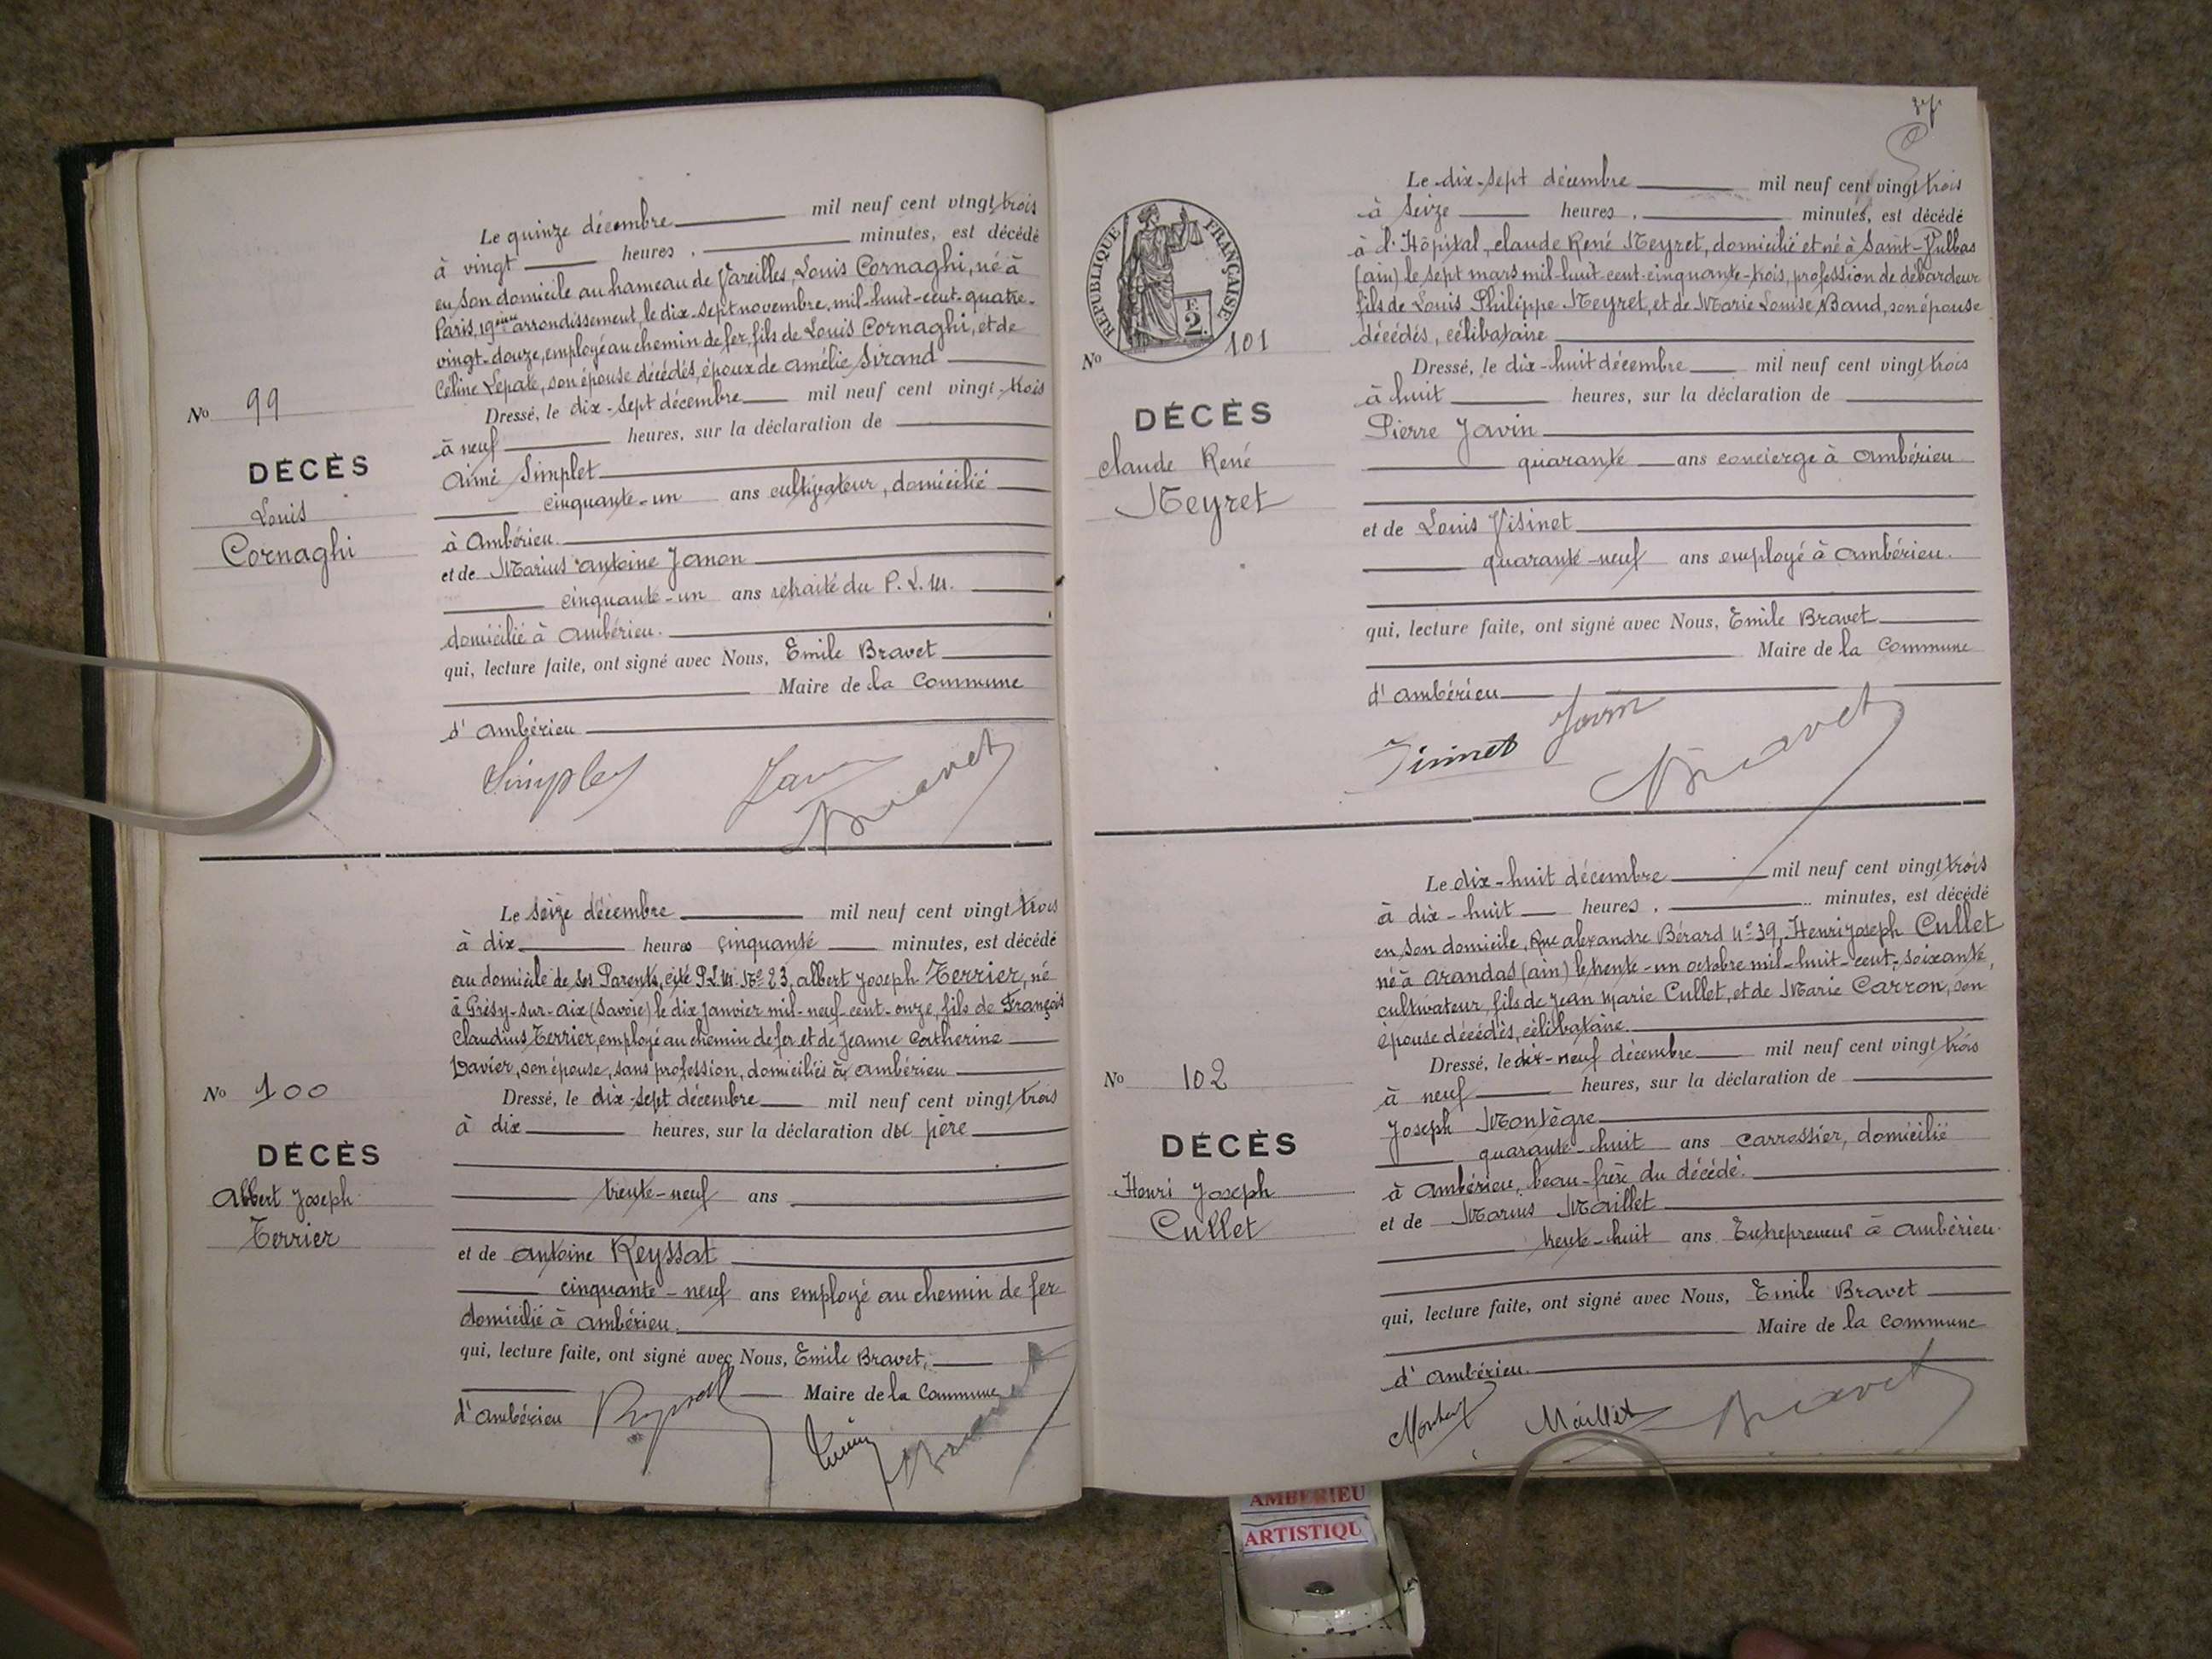 Le quinze décembre mil neuf cent vingt trois
à vingt heures, minutes, est décédé
en son domicile au hameau de Vareilles, Louis Cornaghi, né à
Paris, 19ème arrondissement, le dix-sept novembre, mil-huit-cent-quatre-
vingt-douze, employé au chemin de fer, fils de Louis Cornaghi, et de
Céline Lepate, son épouse décédés, époux de Amélie Sirand
No 99
DÉCÈS
Louis
Cornaghi
Dressé, le dix-sept décembre mil neuf cent vingt-trois
à neuf heures, sur la déclaration de
Aimé Simplet
cinquante-un ans cultivateur, domicilié
à Ambérieu.
et de Marius Antoine Janon
cinquante-un ans retraité du P.L.M.
domicilié à Ambérieu.
qui, lecture faite, ont signé avec Nous, Emile Bravet
Maire de la Commune
d'Ambérieu
Simplet
Bravet
Le seize décembre mil neuf cent vingt trois
à dix heures cinquante minutes, est décédé
au domicile de ses Parents, cité P.L.M. No 23, Albert Joseph Terrier, né
à Grésy-sur-Aix (Savoie) le dix janvier mil-neuf-cent-onze, fils de François
Claudius Terrier, employé au chemin de fer et de Jeanne Catherine
Davier, son épouse, sans profession, domiciliés à Ambérieu
No 100
DÉCÈS
Albert Joseph
Terrier
Dressé, le dix-sept décembre mil neuf cent vingt trois
à dix heures, sur la déclaration du père
trente-neuf ans
et de Antoine Reyssat
cinquante-neuf ans employé au chemin de fer
domicilié à Ambérieu.
qui, lecture faite, ont signé avec Nous, Emile Bravet,
Maire de la Commune
d'Ambérieu
Bravet
RÉPUBLIQUE FRANÇAISE
2F.
No 101
DÉCÈS
Claude René
Neyret
Le dix-sept décembre mil neuf cent vingt trois
à seize heures, minutes, est décédé
à l'Hôpital, Claude René Neyret, domicilié et né à Saint-Vulbas
(Ain) le sept mars mil-huit-cent-cinquante-trois, profession de débardeur
fils de Louis Philippe Neyret, et de Marie Louise Baud, son épouse
décédés, célibataire
Dressé, le dix-huit décembre mil neuf cent vingt trois
à huit heures, sur la déclaration de
Pierre Javin
quarante ans concierge à Ambérieu
et de Louis Visinet
quarante-neuf ans employé à Ambérieu.
qui, lecture faite, ont signé avec Nous, Emile Bravet
Maire de la Commune
d'Ambérieu
Javin
Bravet
Le dix-huit décembre mil neuf cent vingt trois
à dix-huit heures, minutes, est décédé
en son domicile, Rue Alexandre Bérard No 39, Henri Joseph Cullet
né à Arandas (Ain) le trente-un octobre mil-huit-cent-soixante,
cultivateur, fils de Jean Marie Cullet, et de Marie Carron, son
épouse décédés, célibataire.
No 102
DÉCÈS
Henri Joseph
Cullet
Dressé, le dix-neuf décembre mil neuf cent vingt trois
à neuf heures, sur la déclaration de
Joseph Montègre
quarante-huit ans carrossier, domicilié
à Ambérieu, beau-frère du décédé.
et de Marius Maillet
trente-huit ans Entrepreneur à Ambérieu.
qui, lecture faite, ont signé avec Nous, Emile Bravet
Maire de la Commune
d'Ambérieu.
Maillet
Bravet
AMBERIEU
ARTISTIQU